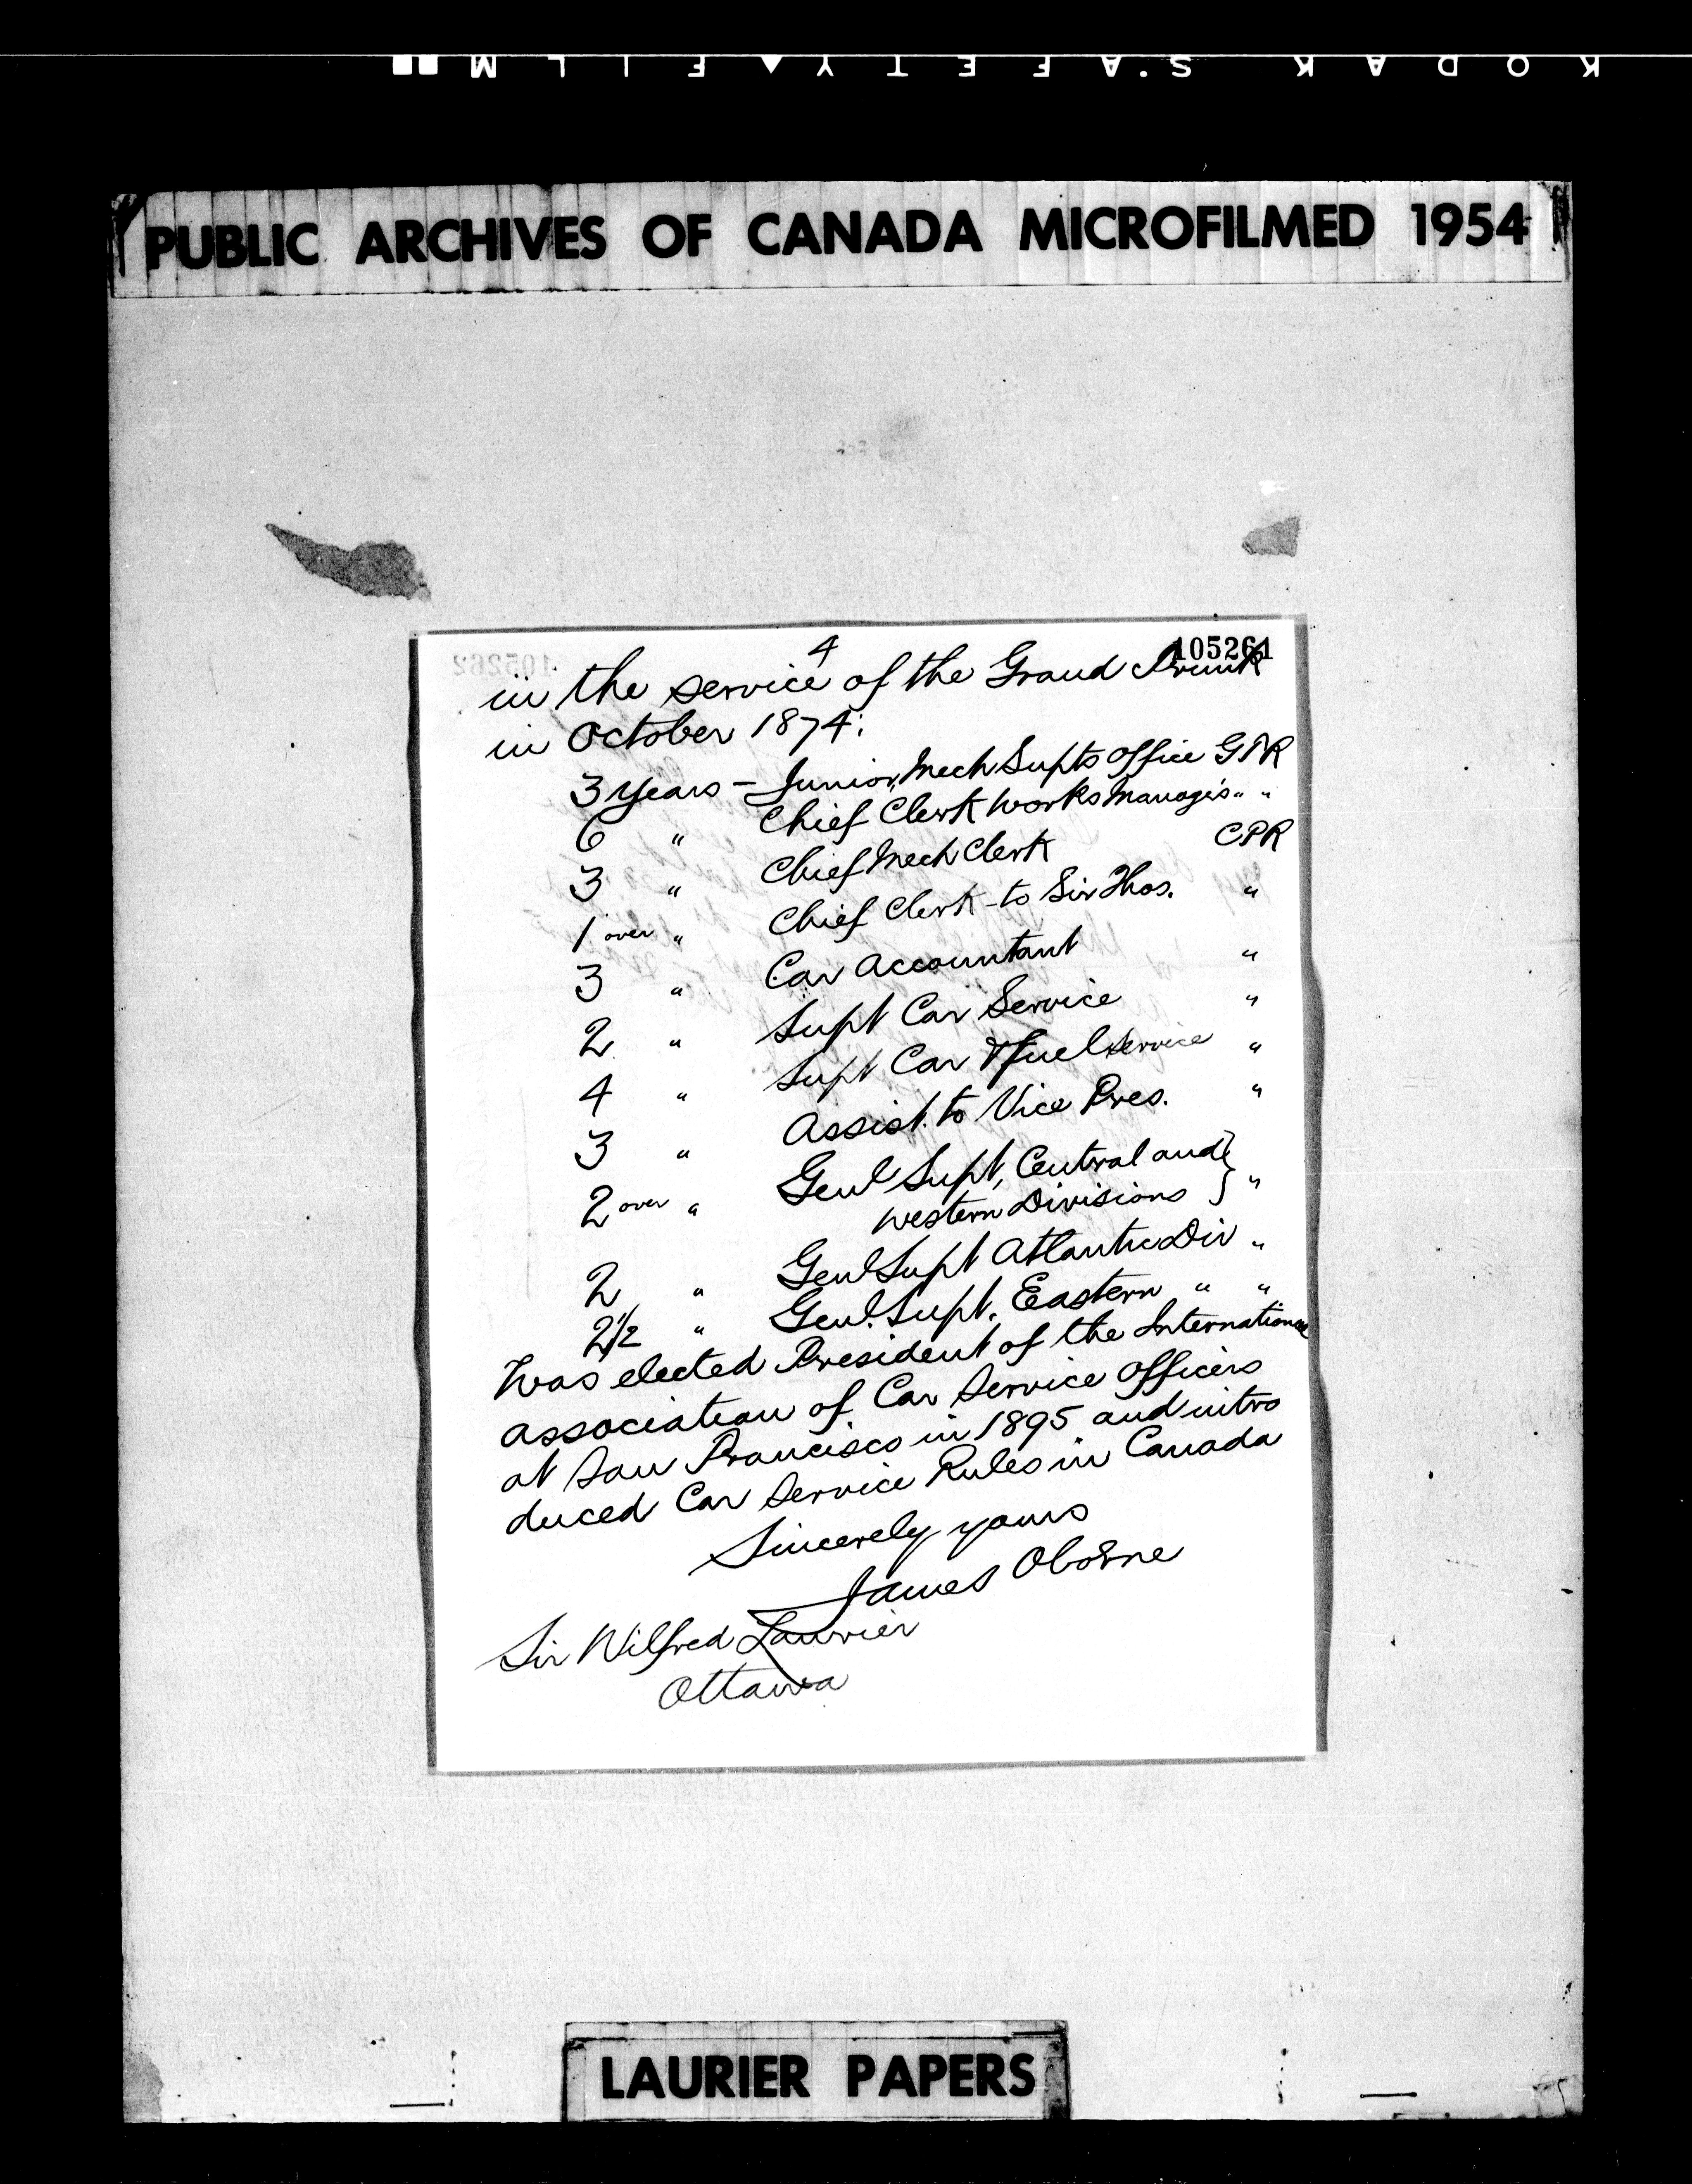 KODAK SAFETY FILM
PUBLIC ARCHIVES OF CANADA MICROFILMED 1954
105261
4
in the service of the Grand Trunk
in October 1874:
3 years - Junior Mech Supts Office GTR
6 " Chief Clerk Works Manager's " "
3 " Chief Mech Clerk CPR
1 over " Chief Clerk to Sir Thos. "
3 " Car Accountant "
2 " Supt Car Service "
4 " Supt Car & Fuel Service "
3 " Assist. to Vice Pres. "
2 over " Genl Supt, Central and
Western Divisions } "
2 " Genl Supt Atlantic Div "
2 1/2 " Genl. Supt. Eastern " "
Was elected President of the International
Association of Car Service Officers
at San Francisco in 1895 and intro
duced Car Service Rules in Canada
Sincerely yours
James Oborne
Sir Wilfred Laurier
Ottawa
LAURIER PAPERS